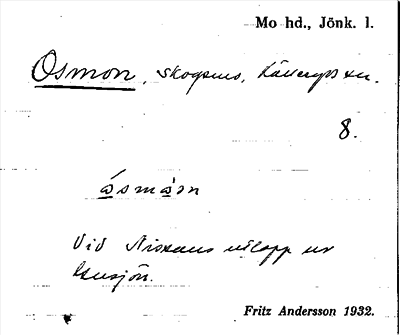 Mo hd., Jönk. l.
Osmon, skogsns, Källeryds sn.
8.
åsmån
Vid Nissans utlopp ur
sjön.
Fritz Andersson 1932.